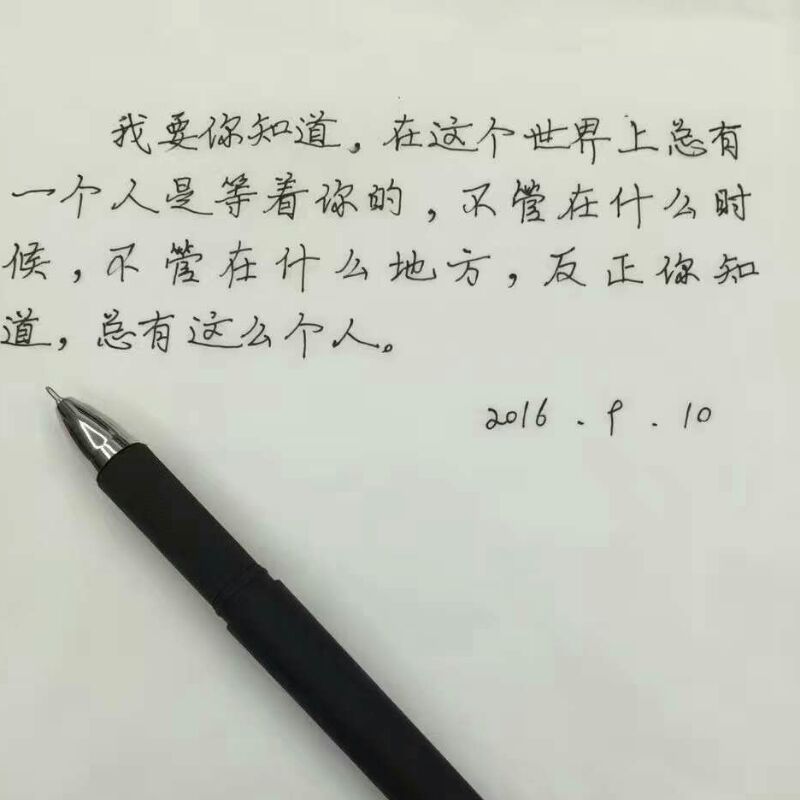 我要你知道，在这个世界上总有
一个人是等着你的，不管在什么时
候，不管在什么地方，反正你知
道，总有这么个人。
2016 . 9 . 10